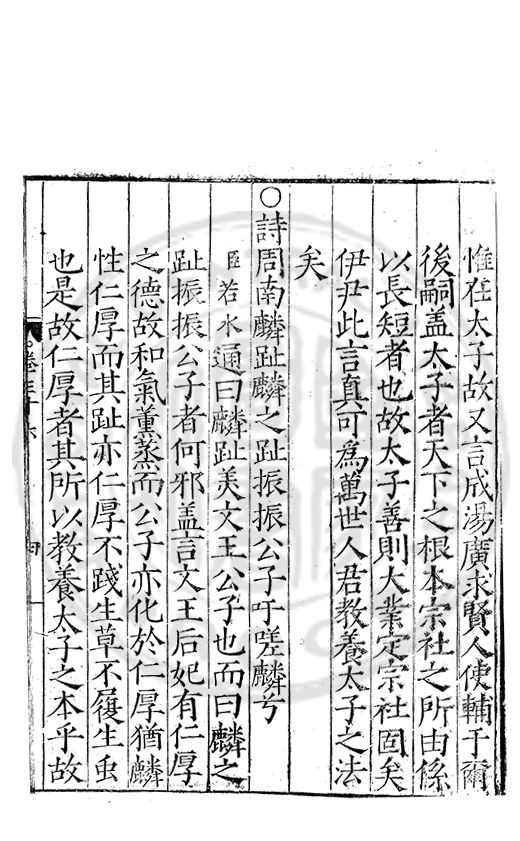 惟在太子故又言成湯廣求賢人使輔于爾
後嗣盖太子者天下之根本宗社之所由係
以長短者也故太子善則大業定宗社固矣
伊尹此言真可為萬世人君教養太子之法
矣
○詩周南麟趾麟之趾振振公子吁嗟麟兮
臣若水通曰麟趾美文王公子也而曰麟之
趾振振公子者何邪盖言文王后妃有仁厚
之德故和氣薫蒸而公子亦化於仁厚猶麟
性仁厚而其趾亦仁厚不踐生草不履生虫
也是故仁厚者其所以教養太子之本乎故